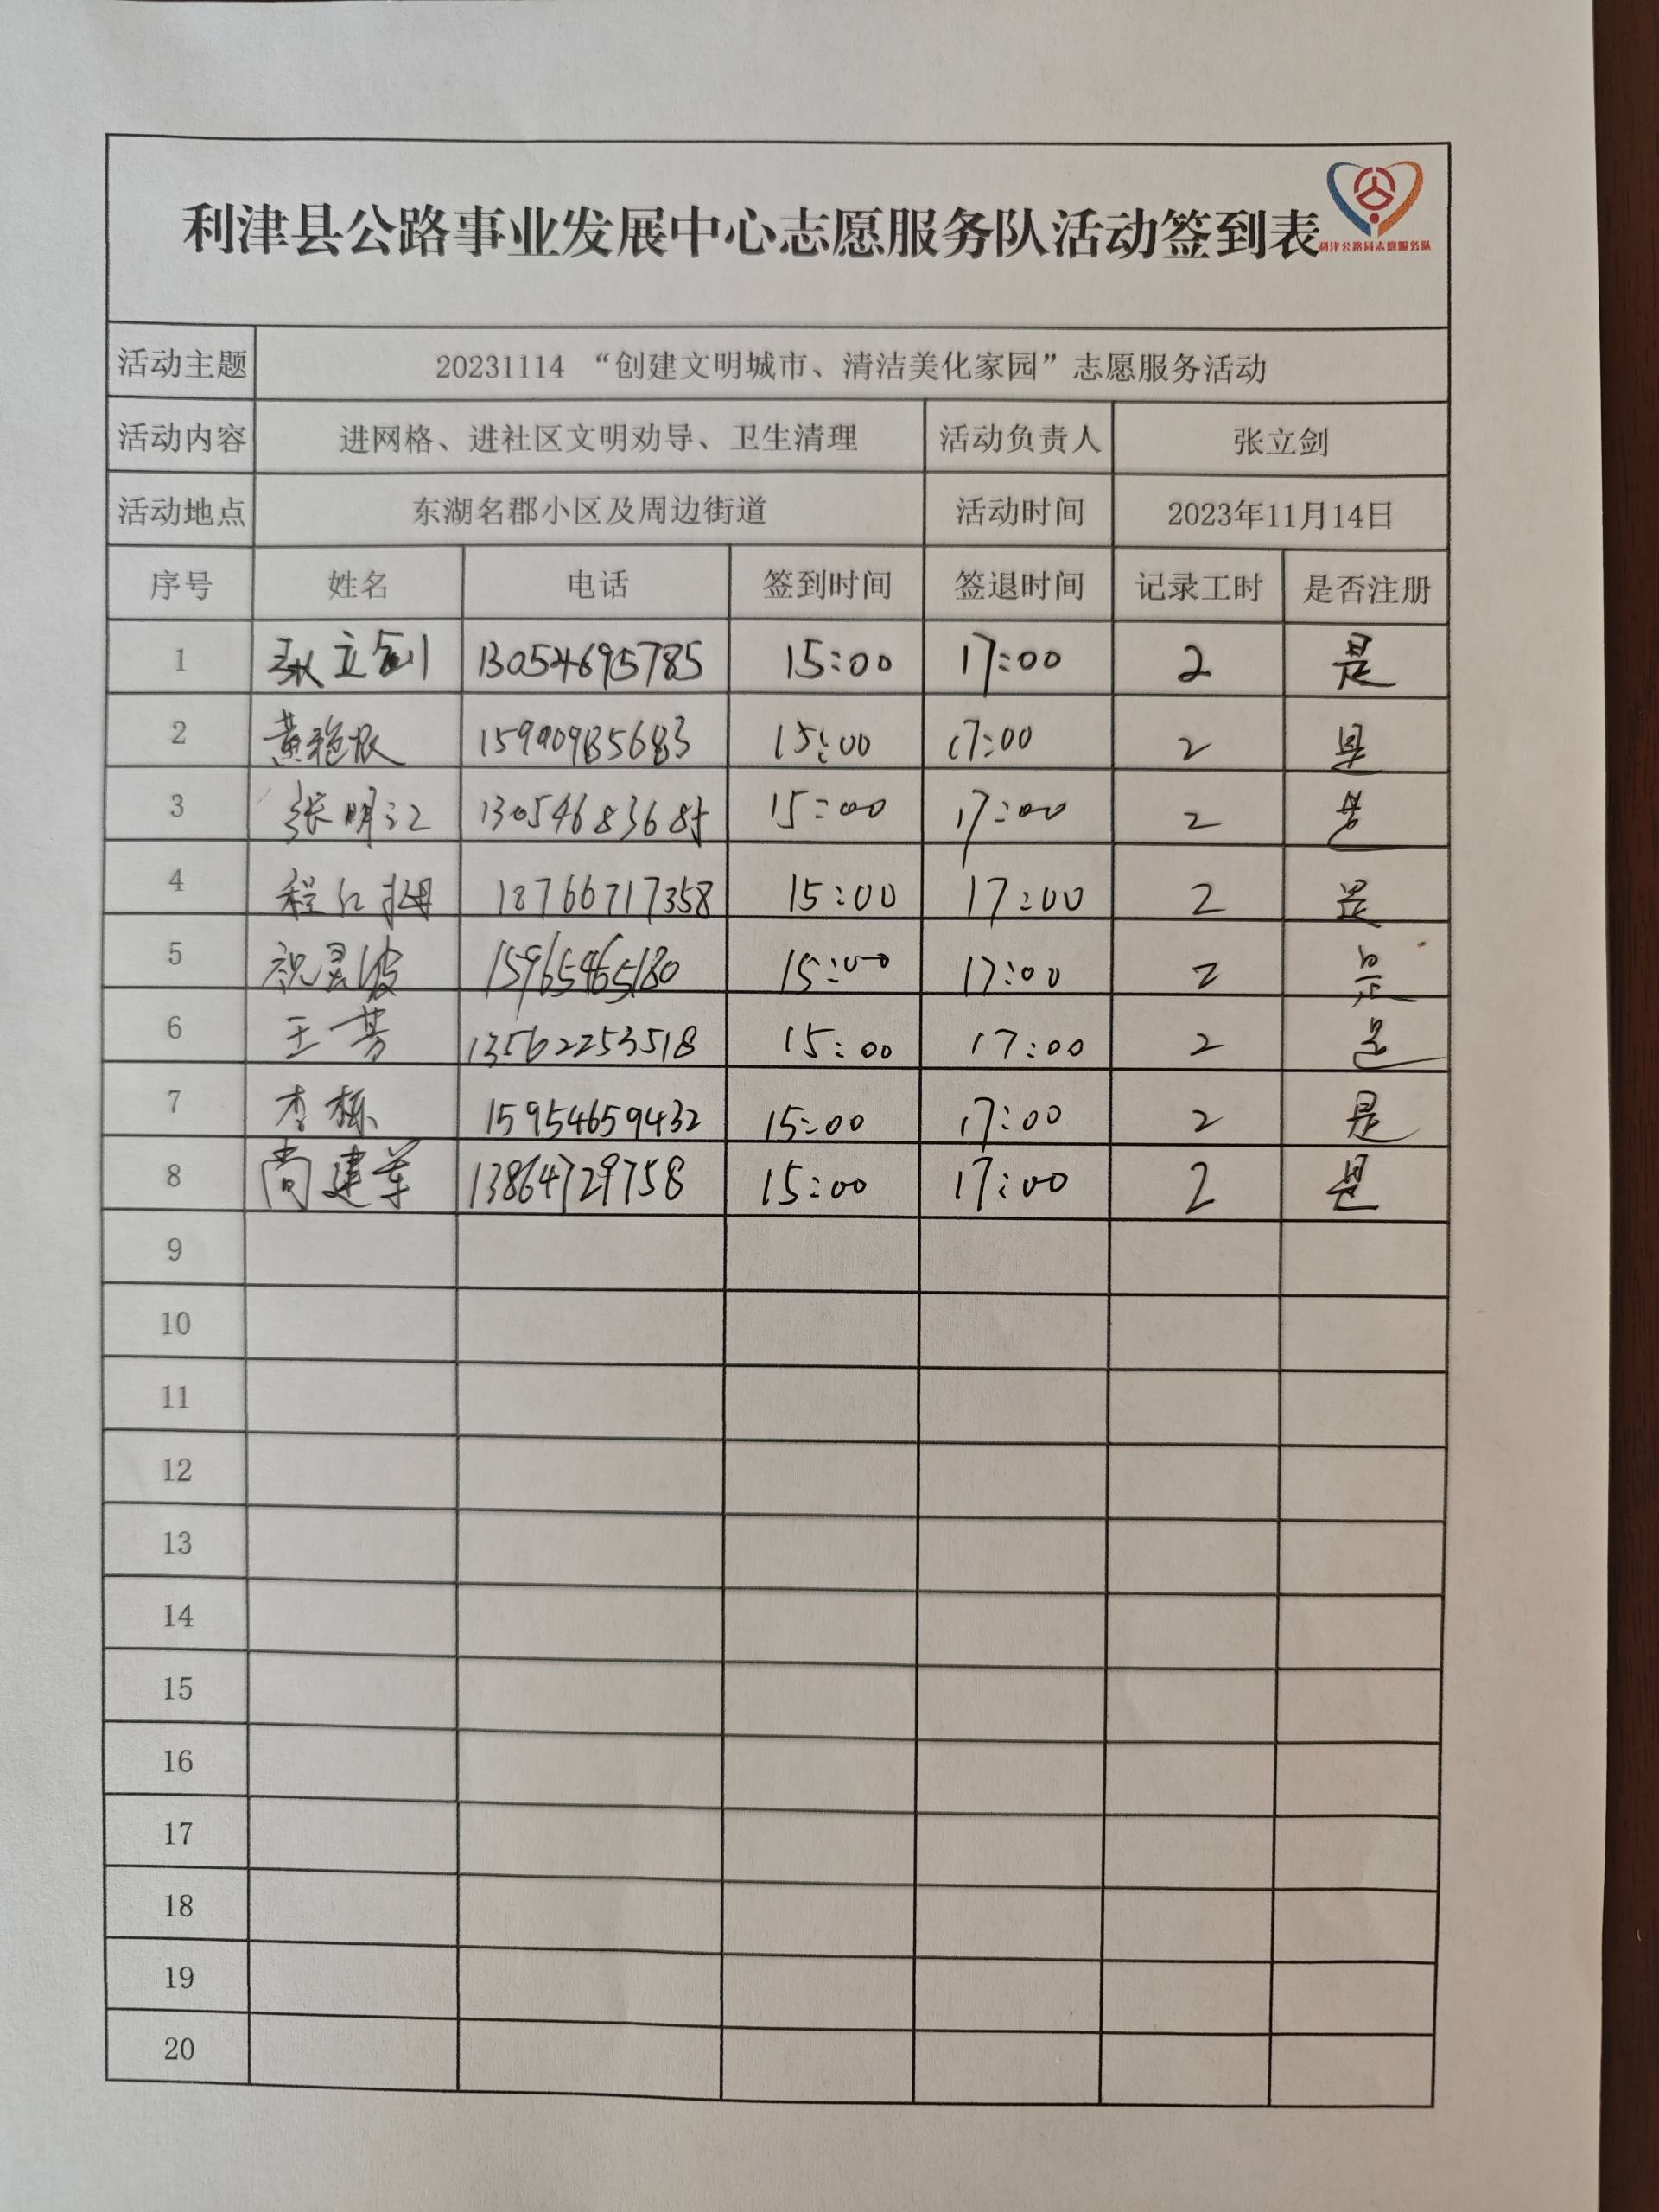 利津县公路事业发展中心志愿服务队活动签到表
利津公路局志愿服务队
活动主题 20231114 “创建文明城市、清洁美化家园”志愿服务活动
活动内容 进网格、进社区文明劝导、卫生清理 活动负责人 张立剑
活动地点 东湖名郡小区及周边街道 活动时间 2023年11月14日
序号 姓名 电话 签到时间 签退时间 记录工时 是否注册
1 张立剑 13054695785 15:00 17:00 2 是
2 15:00 17:00 2 是
3 张明江 13054683685 15:00 17:00 2 是
4 程 18766717358 15:00 17:00 2 是
5 祝 波 15965465180 15:00 17:00 2 是
6 王芳 13562253518 15:00 17:00 2 是
7 李栋 15954659432 15:00 17:00 2 是
8 尚建军 13864729758 15:00 17:00 2 是
9
10
11
12
13
14
15
16
17
18
19
20